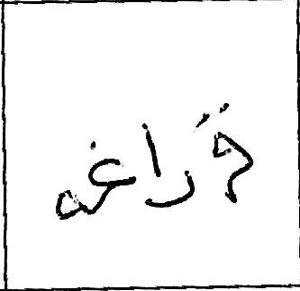 قراغه